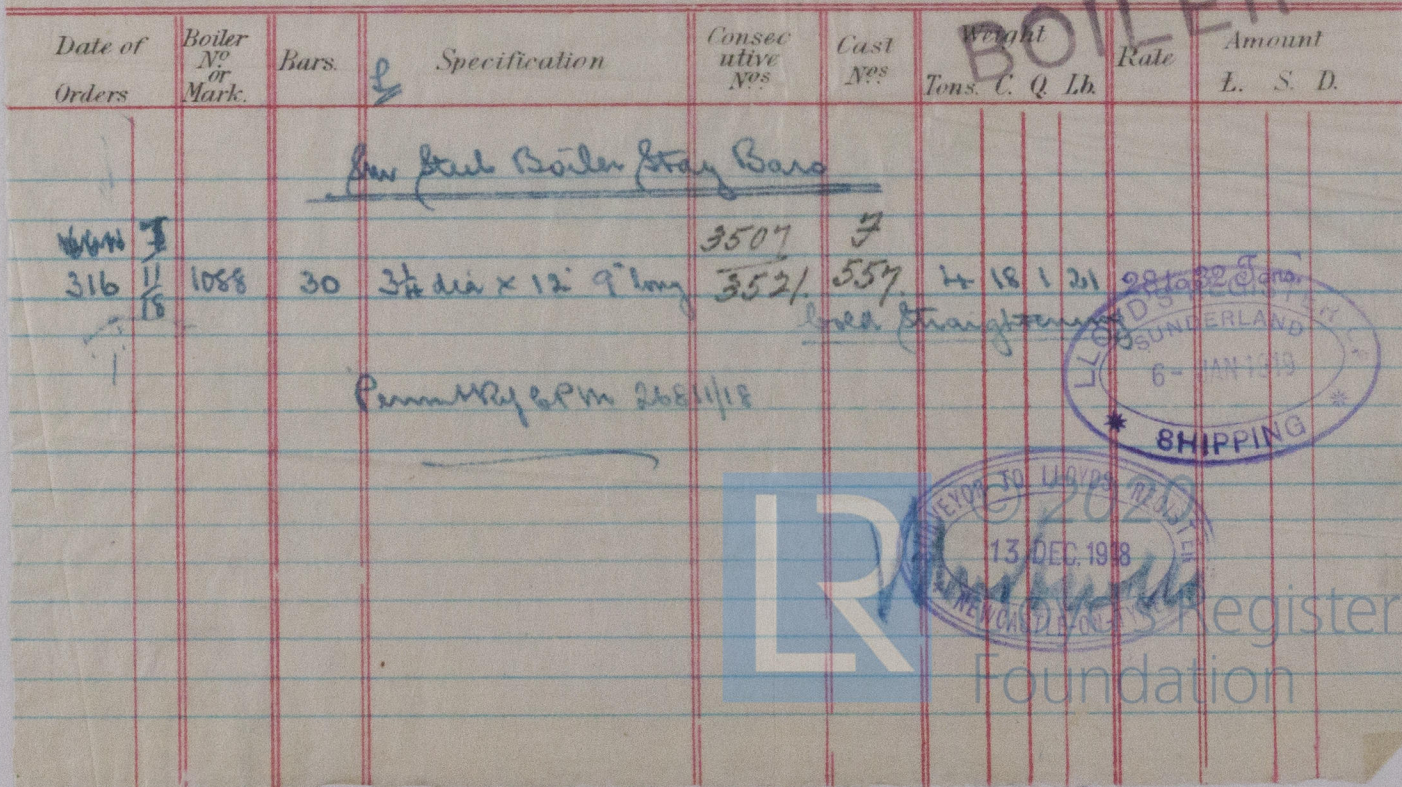 BOILER
Date of Orders Boiler No or Mark. Bars. Specification Consecutive Nos Cast Nos Weight Tons. C. Q. Lb. Rate Amount £. S. D.
Steel Boiler Stay Bars
7 3507 F
316 11/18 1088 30 3¼ dia × 12' 9" long 3521. 557. 4 18 1 21 28 to 32 Tons.
Cold Straightening
11/18
LLOYD'S REGISTER
SUNDERLAND
6 - JAN 1919
SHIPPING
SURVEYOR TO LLOYDS REGISTER
13 DEC. 1918
NEWCASTLE-ON-TYNE
LR
© 2020
Lloyd's Register
Foundation